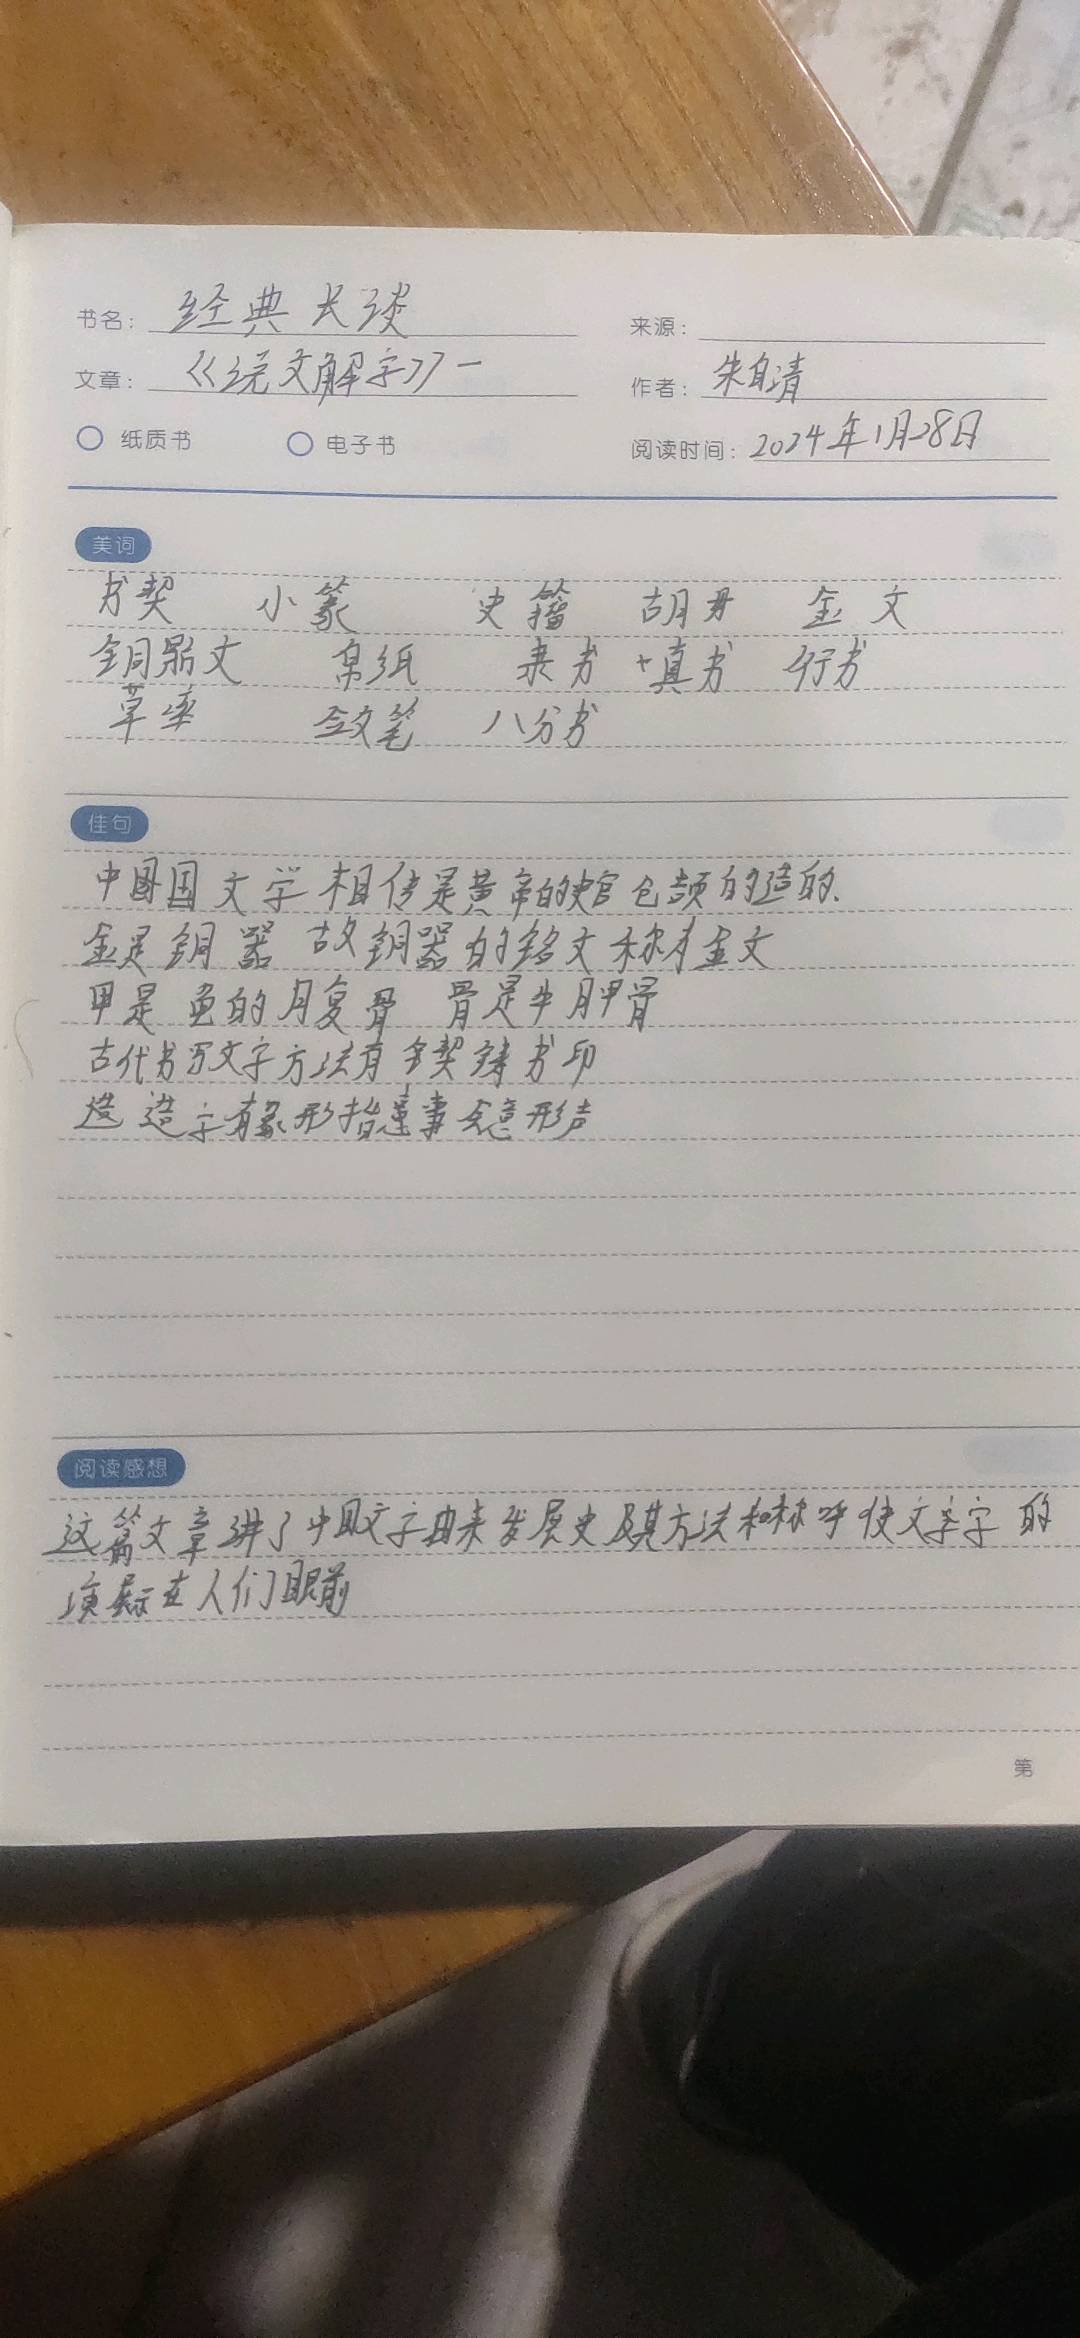 书名： 经典长谈
来源：
文章： 《说文解字》一
作者： 朱自清
纸质书 电子书
阅读时间： 2024年1月28日
美词
书契 小篆 史籀 胡毋 金文
铜器文 帛纸 隶书 真书 行书
草率 敛笔 八分书
佳句
中国文字相传是黄帝的史官仓颉的造的.
金是铜器 故铜器的铭文称为金文
甲是龟的腹骨 骨是牛胛骨
古代书写文字方法有 契 书印
造字有象形指事会意形声
阅读感想
这篇文章讲了中国文字由来发展史及其方法和称呼使文字 的
展示在人们眼前
第